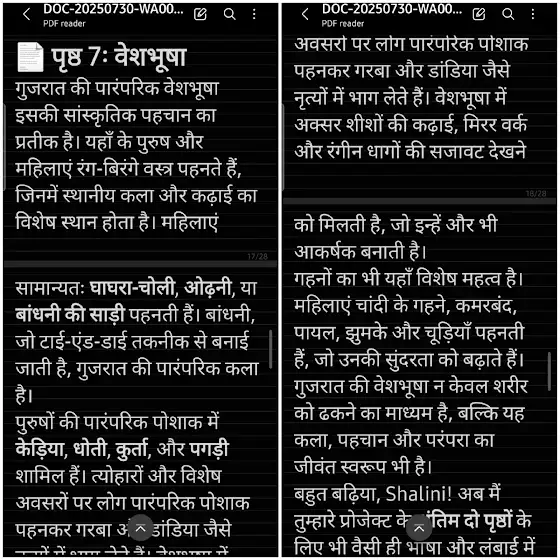 DOC-20250730-WA00...
PDF reader
📄 पृष्ठ 7: वेशभूषा
गुजरात की पारंपरिक वेशभूषा
इसकी सांस्कृतिक पहचान का
प्रतीक है। यहाँ के पुरुष और
महिलाएं रंग-बिरंगे वस्त्र पहनते हैं,
जिनमें स्थानीय कला और कढ़ाई का
विशेष स्थान होता है। महिलाएं
17/28
सामान्यतः घाघरा-चोली, ओढ़नी, या
बांधनी की साड़ी पहनती हैं। बांधनी,
जो टाई-एंड-डाई तकनीक से बनाई
जाती है, गुजरात की पारंपरिक कला
है।
पुरुषों की पारंपरिक पोशाक में
केड़िया, धोती, कुर्ता, और पगड़ी
शामिल हैं। त्योहारों और विशेष
अवसरों पर लोग पारंपरिक पोशाक
पहनकर गरबा डांडिया जैसे
DOC-20250730-WA00...
PDF reader
अवसरों पर लोग पारंपरिक पोशाक
पहनकर गरबा और डांडिया जैसे
नृत्यों में भाग लेते हैं। वेशभूषा में
अक्सर शीशों की कढ़ाई, मिरर वर्क
और रंगीन धागों की सजावट देखने
18/28
को मिलती है, जो इन्हें और भी
आकर्षक बनाती है।
गहनों का भी यहाँ विशेष महत्व है।
महिलाएं चांदी के गहने, कमरबंद,
पायल, झुमके और चूड़ियाँ पहनती
हैं, जो उनकी सुंदरता को बढ़ाते हैं।
गुजरात की वेशभूषा न केवल शरीर
को ढकने का माध्यम है, बल्कि यह
कला, पहचान और परंपरा का
जीवंत स्वरूप भी है।
बहुत बढ़िया, Shalini! अब मैं
तुम्हारे प्रोजेक्ट के दो पृष्ठों के
लिए भी वैसी ही भाषा और लंबाई में